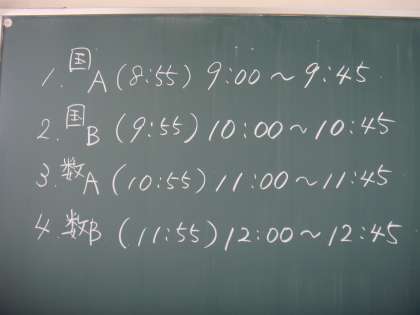 1. 国A (8:55) 9:00～9:45
2. 国B (9:55) 10:00～10:45
3. 数A (10:55) 11:00～11:45
4. 数B (11:55) 12:00～12:45